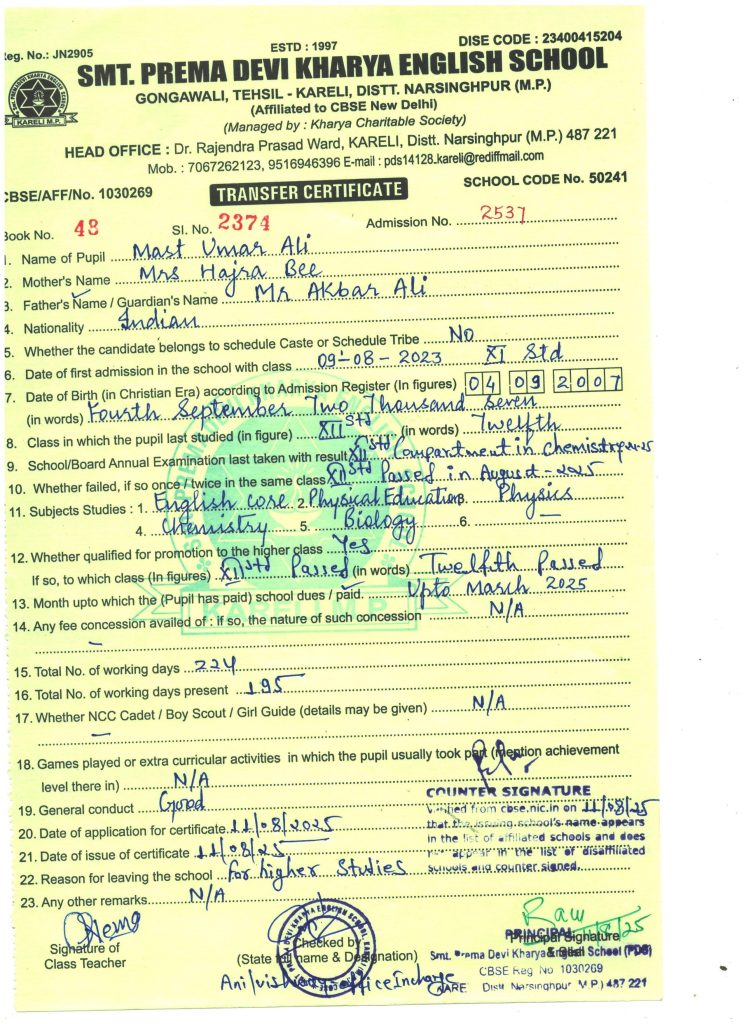 Reg. No.: JN2905
ESTD : 1997
DISE CODE : 23400415204
SMT. PREMA DEVI KHARYA ENGLISH SCHOOL
GONGAWALI, TEHSIL - KARELI, DISTT. NARSINGHPUR (M.P.)
(Affiliated to CBSE New Delhi)
(Managed by : Kharya Charitable Society)
KARELI M.P.
HEAD OFFICE : Dr. Rajendra Prasad Ward, KARELI, Distt. Narsinghpur (M.P.) 487 221
Mob. : 7067262123, 9516946396 E-mail : pds14128.kareli@rediffmail.com
CBSE/AFF/No. 1030269
TRANSFER CERTIFICATE
SCHOOL CODE No. 50241
Book No. 48 Sl. No. 2374 Admission No. 2537
1. Name of Pupil Mast Umar Ali
2. Mother's Name Mrs Hajra Bee
3. Father's Name / Guardian's Name Mr Akbar Ali
4. Nationality Indian
5. Whether the candidate belongs to schedule Caste or Schedule Tribe No
6. Date of first admission in the school with class 09-08-2023 XI Std
7. Date of Birth (in Christian Era) according to Admission Register (In figures) 04 09 2007
(in words) Fourth September Two Thousand Seven
8. Class in which the pupil last studied (in figure) XII Std (in words) Twelfth
9. School/Board Annual Examination last taken with result XII Std Compartment in Chemistry
10. Whether failed, if so once / twice in the same class XII Std Passed in August-2025
11. Subjects Studies : 1. English core 2. Physical Education 3. Physics
4. Chemistry 5. Biology 6. —
12. Whether qualified for promotion to the higher class Yes
If so, to which class (In figures) XII Std Passed (in words) Twelfth Passed
13. Month upto which the (Pupil has paid) school dues / paid. Upto March 2025
14. Any fee concession availed of : if so, the nature of such concession N/A
—
KARELI M.P.
15. Total No. of working days 224
16. Total No. of working days present 195
17. Whether NCC Cadet / Boy Scout / Girl Guide (details may be given) N/A
—
18. Games played or extra curricular activities in which the pupil usually took part (mention achievement
level there in) N/A
COUNTER SIGNATURE
Verified from cbse.nic.in on 11/08/25
that the issuing school's name appears
in the list of affiliated schools and does
not appear in the list of disaffiliated
schools and counter signed.
19. General conduct Good
20. Date of application for certificate 11/08/2025
21. Date of issue of certificate 11/08/25
22. Reason for leaving the school for higher Studies
23. Any other remarks N/A
Hema
Signature of
Class Teacher
Checked by
(State full name & Designation)
office Incharge
Principal Signature
PRINCIPAL
Smt. Prema Devi Kharya English School (PDS)
CBSE Reg No 1030269
Distt Narsinghpur M.P.) 487 221